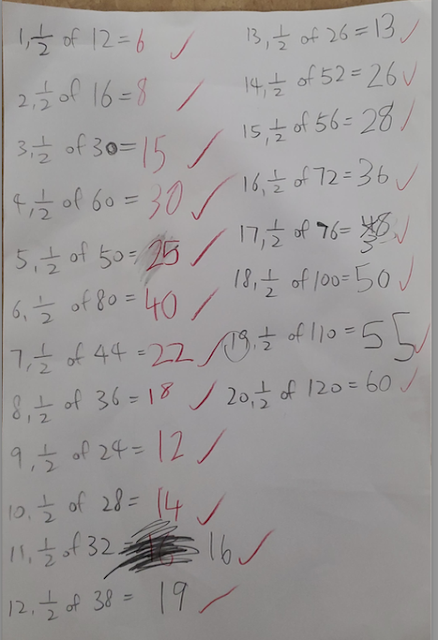 1, 1/2 of 12 = 6 ✓
2, 1/2 of 16 = 8 ✓
3, 1/2 of 30 = 15 ✓
4, 1/2 of 60 = 30 ✓
5, 1/2 of 50 = 25 ✓
6, 1/2 of 80 = 40 ✓
7, 1/2 of 44 = 22 ✓
8, 1/2 of 36 = 18 ✓
9, 1/2 of 24 = 12 ✓
10, 1/2 of 28 = 14 ✓
11, 1/2 of 32 = 16 ✓
12, 1/2 of 38 = 19 ✓
13, 1/2 of 26 = 13 ✓
14, 1/2 of 52 = 26 ✓
15, 1/2 of 56 = 28 ✓
16, 1/2 of 72 = 36 ✓
17, 1/2 of 76 = ✓
18, 1/2 of 100 = 50 ✓
19, 1/2 of 110 = 55 ✓
20, 1/2 of 120 = 60 ✓